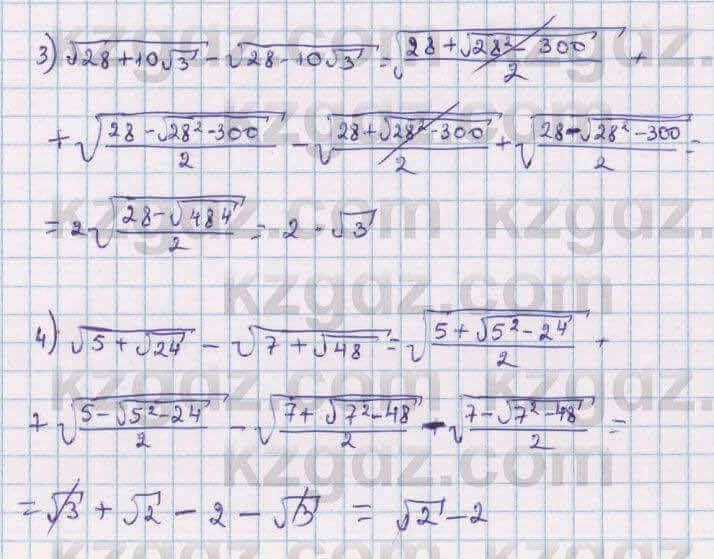 3) √(28+10√3) - √(28-10√3) = √((28+√(28²-300))/2) +
+ √((28-√(28²-300))/2) - √((28+√(28²-300))/2) + √((28-√(28²-300))/2) =
= 2√((28-√484)/2) = 2·√3
4) √(5+√24) - √(7+√48) = √((5+√(5²-24))/2) +
+ √((5-√(5²-24))/2) - √((7+√(7²-48))/2) - √((7-√(7²-48))/2) =
= √3 + √2 - 2 - √3 = √2 - 2
kzgdz.com